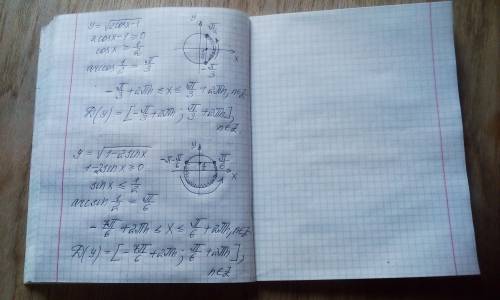 y = √2cosx-1
2cosx-1≥0
cosx ≥ 1/2
arccos 1/2 = π/3
y
π/3
x
-π/3
-π/3 + 2πn ≤ x ≤ π/3 + 2πn, n∈Z
D(y) = [-π/3 + 2πn ; π/3 + 2πn],
n∈Z
y = √1-2sinx
1-2sinx ≥ 0
sinx ≤ 1/2
arcsin 1/2 = π/6
y
-π-π/6
π/6
x
-7π/6 + 2πn ≤ x ≤ π/6 + 2πn, n∈Z
D(y) = [-7π/6 + 2πn ; π/6 + 2πn],
n∈Z